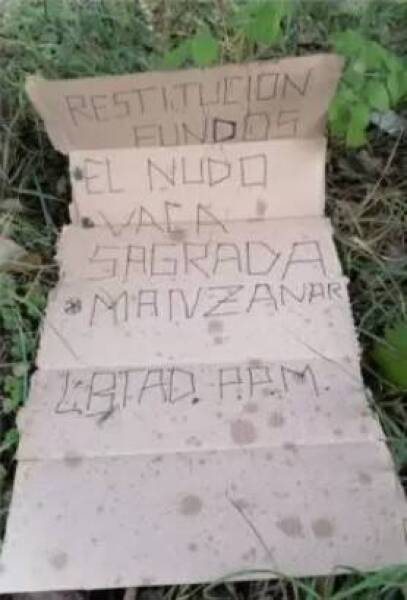 RESTITUCION
FUNDOS
* EL NUDO
* VACA
SAGRADA
* MANZANAR
LBTAD. P.P.M.